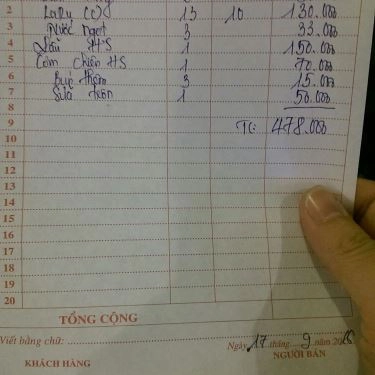 2 Laru (V) 13 10 130.000
3 Nước ngọt 3 33.000
4 Lẩu HS 1 150.000
5 Cơm chiên HS 1 70.000
6 3 15.000
7 1 50.000
8
9 TC: 478.000
10
11
12
13
14
15
16
17
18
19
20
TỔNG CỘNG
Viết bằng chữ:
Ngày 17 tháng 9 năm 20
KHÁCH HÀNG NGƯỜI BÁN